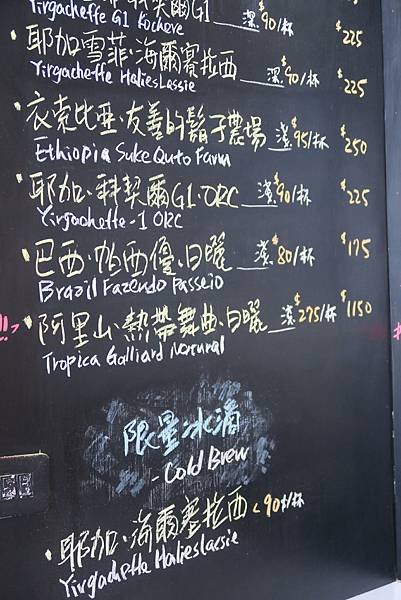 Yirgacheffe G1 Kochere $90/杯 $225
耶加雪菲·海爾賽拉西 濕$90/杯 $225
Yirgacheffe HaliesLassie
衣索比亞·友善的鬍子農場 濕$95/杯 $250
Ethiopia Suke Quto Farm
耶加·科契爾G1·ORC 濕$90/杯 $225
Yirgacheffe-1 ORC
巴西·帕西優·日曬 $80/杯 $175
Brazil Fazendo Passeio
阿里山·熱帶舞曲·日曬 $275/杯 $1150
Tropica Galliard Natural
限量冰滴
- Cold Brew
·耶加·海爾塞拉西 <90$/杯
Yirgacheffe Halieslassie